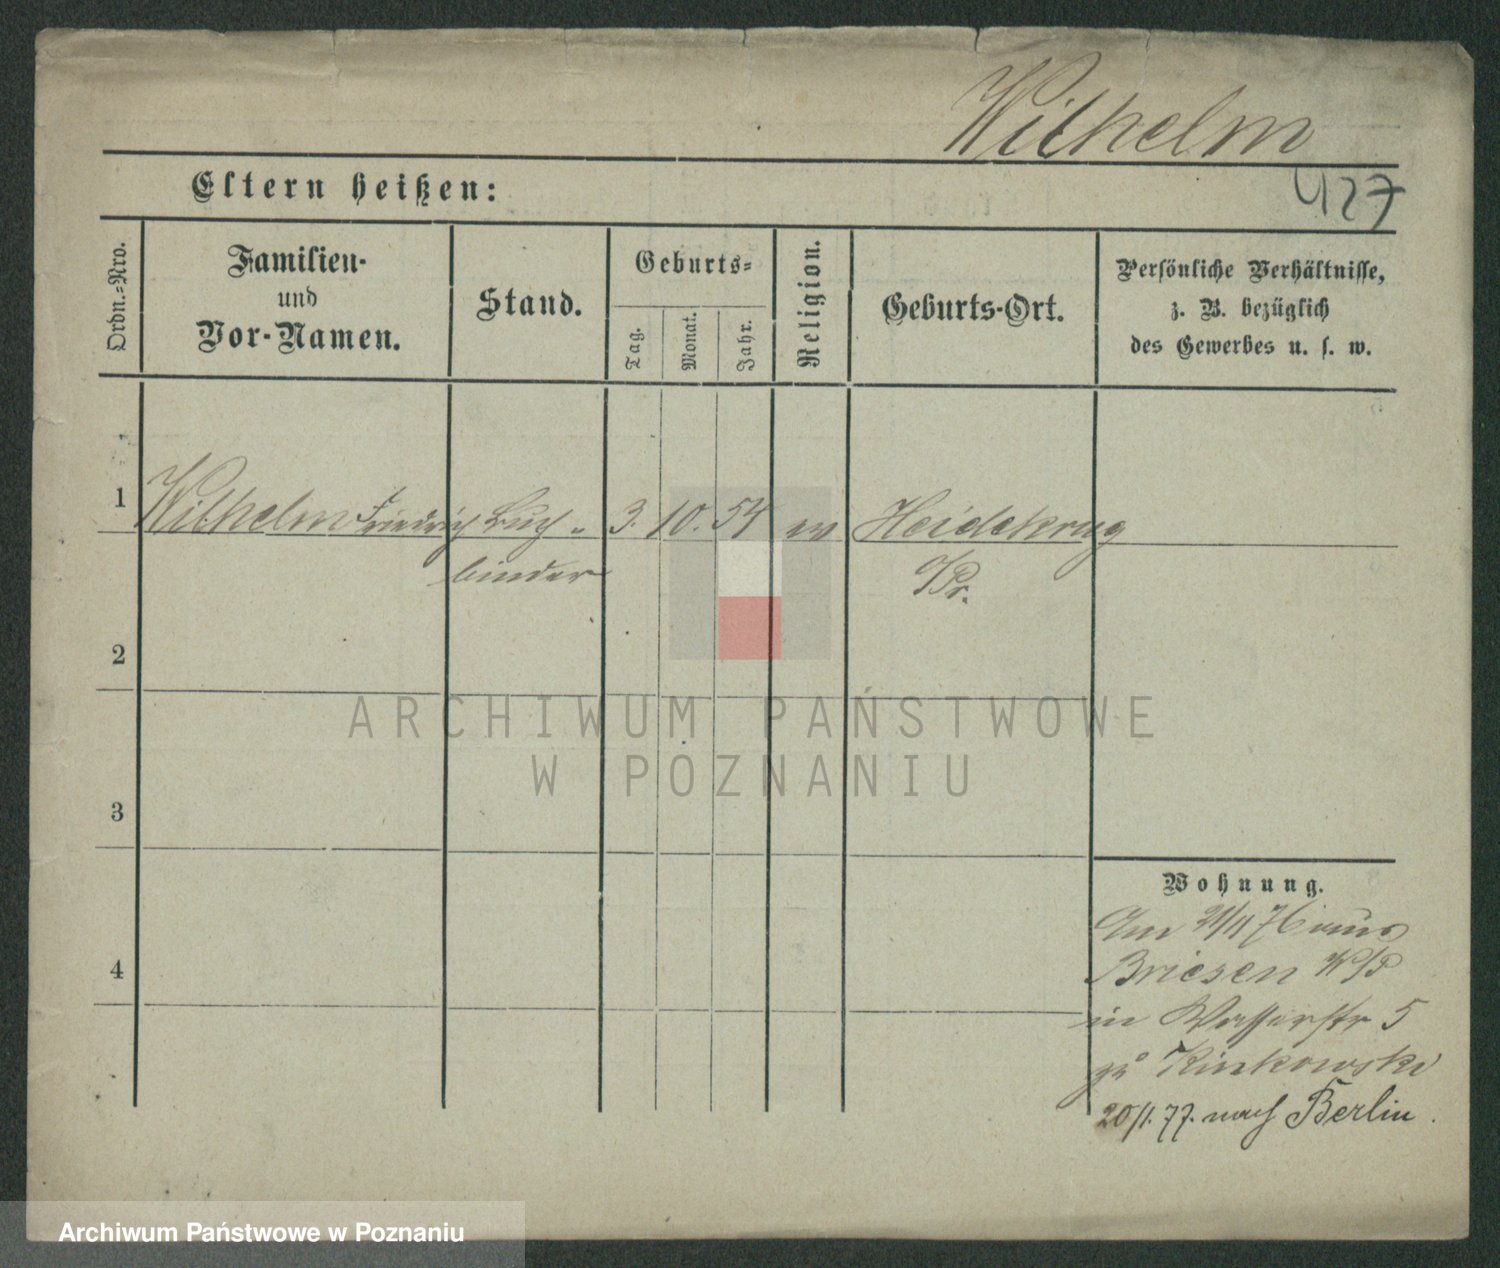 Wilhelm
427
Eltern heißen:
Ordn.-Nro.
Familien-
und
Vor-Namen.
Stand.
Geburts-
Tag.
Monat.
Jahr.
Religion.
Geburts-Ort.
Persönliche Verhältnisse,
z. B. bezüglich
des Gewerbes u. s. w.
1 Wilhelm Friedrich Buch- 3. 10. 54 ev Heidekrug
binder
2
3
4
Wohnung.
Am 21/11 76 aus
Briesen W/P
in Wasserstr 5
zu Kinkowski
20/1. 77. nach Berlin.
ARCHIWUM PAŃSTWOWE
W POZNANIU
Archiwum Państwowe w Poznaniu